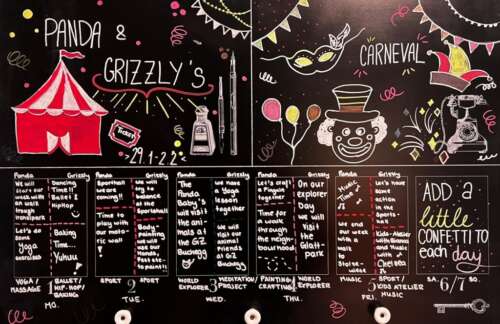 PANDA &
GRIZZLY'S
Ticket
29.1-2.2
CARNEVAL
Panda Grizzly
We will
start our
week with
an walk
trough
Let's do
some
Yoga
exercises
Dancing
Time!!
Ballet &
HipHop
Baking
Time...
Yuhuu
Panda Grizzly
Sporthall
we are
coming!!
Time to
play with
our moto-
ric wall
!
We will
go to
dance
in the
Sporthall
Body-
painting
we will
use our
Hands,
Feet etc.
to paint!!
Panda Grizzly
The
Panda
Baby's
will visit
the ani-
mals at
the GZ
Buchegg
we have
a Yoga
lesson
together
we will
visit our
animal
friends
at GZ
Buchegg
Panda Grizzly
Let's craft
a Pinguin
together
Time for
a walk
through
the neigh-
bourhood
On our
Explorer
Day
we will
visit the
Glatt-
park
Panda Grizzly
Music
Time
we end
our week
with a
walk
to
Let's have
some
action
in the
Sports-
Kids-Atelier
with
and Music
with
Chelsea
ADD a
little
CONFETTI TO
each day
YOGA/
MASSAGE
1
BALLET/
HIP-HOP/
BAKING
MO.
SPORT 2 SPORT
TUE.
WORLD
EXPLORER
3
MEDITATION/
PROJECT
WED.
PAINTING/
CRAFTING
4
WORLD
EXPLORER
THU.
MUSIC
5
SPORT/
KIDS ATELIER
MUSIC
FRI.
SA. 6/7 SO.